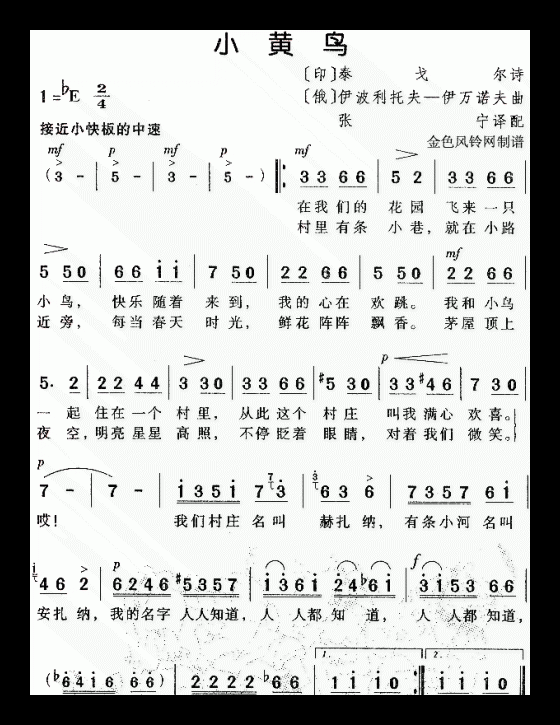 小黄鸟
〔印〕泰 戈 尔诗
1=♭E 2/4
〔俄〕伊波利托夫—伊万诺夫曲
张 宁译配
接近小快板的中速
金色风铃网制谱
mf p mf p mf
(3 - | 5 - | 3 - | 5 - ) ‖: 3 3 6 6 | 5 2 | 3 3 6 6 |
在我们的 花园 飞来一只
村里有条 小巷，就在小路
mf
5 5 0 | 6 6 i i | 7 5 0 | 2 2 6 6 | 5 5 0 | 2 2 6 6 |
小鸟， 快乐随着 来到， 我的心在 欢跳。 我和小鸟
近旁， 每当春天 时光， 鲜花阵阵 飘香。 茅屋顶上
p
5. 2 | 2 2 4 4 | 3 3 0 | 3 3 6 6 | #5 3 0 | 3 3 #4 6 | 7 3 0 |
一 起 住在一个 村里， 从此这个 村庄 叫我满心 欢喜。
夜 空，明亮星星 高照， 不停眨着 眼睛， 对着我们 微笑。
p
7 - | 7 - | i 3 5 i 7 3 | 6 3 6 | 7 3 5 7 6 i |
哎！ 我们村庄 名叫 赫扎纳， 有条小河 名叫
p f
4 6 2 | 6 2 4 6 #5 3 5 7 | i 3 6 i 2 4 ♭6 i | 3 i 5 3 6 6 |
安扎纳，我的名字 人人知道，人 人都 知 道， 人 人都 知道，
1. 2.
(♭6 4 i 6 ♭6 6) | 2 2 2 2 ♭6 6 | i i i 0 :‖ i i i 0 ‖